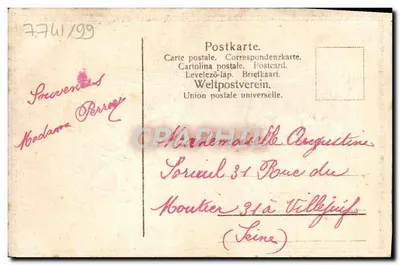 7.741/99
Postkarte.
Carte postale. Correspondenzkarte.
Cartolina postale. Postcard.
Levelező-lap. Briefkaart.
Weltpostverein.
Union postale universelle.
Souvenirs
Madame
Mademoiselle Augustine
31 Rue du
Moutier 31 à Villejuif
(Seine)